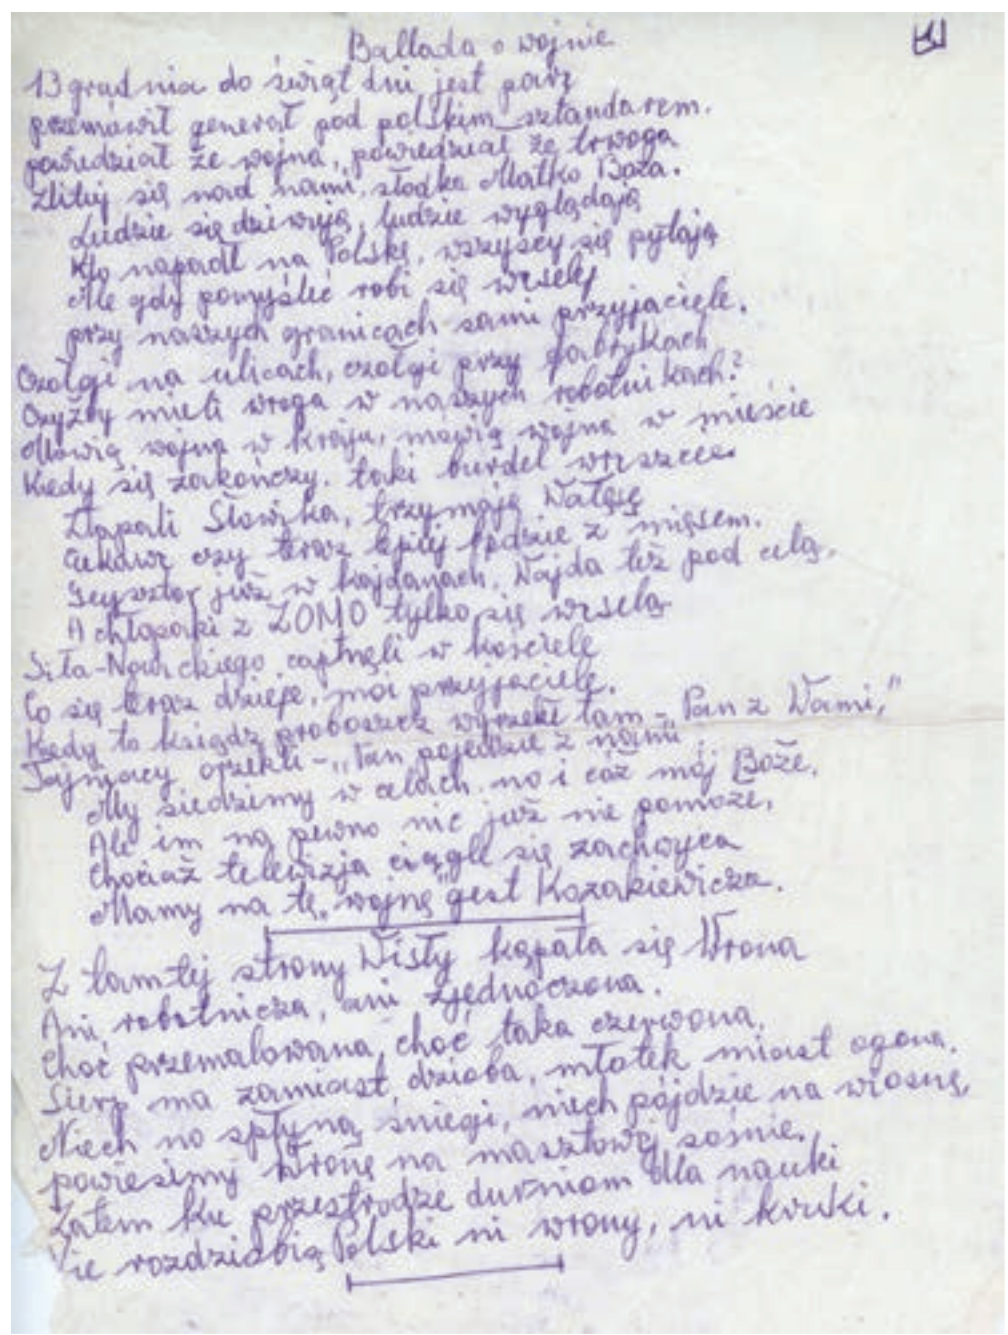 Ballada o wojnie
13 grudnia do świąt dni jest parę
przemówił generał pod polskim sztandarem.
powiedział że wojna, powiedział że trwoga
zlituj się nad nami, słodka Matko Boża.
Ludzie się dziwują, ludzie wyglądają
Kto napadł na Polskę, wszyscy się pytają
Ale gdy pomyśleć robi się weselej
przy naszych granicach sami przyjaciele.
Czołgi na ulicach, czołgi przy fabrykach
Czyżby mieli wroga w naszych robotnikach?
Mówią wojna w kraju, mówią wojna w mieście
Kiedy się zakończy. taki burdel wreszcie.
Złapali Słowika, trzymają Wałęsę
Ciekawe czy teraz lepiej będzie z mięsem.
już w kajdanach. Wajda też pod celą.
A chłopaki z ZOMO tylko się weselą
Siła-Nowickiego capnęli w kościele
Co się teraz dzieje, moi przyjaciele.
Kiedy to ksiądz proboszcz wyrzekł tam - "Pan z Wami,"
Tajniacy orzekli - "Pan pojedzie z nami"
My siedzimy w celach no i cóż mój Boże,
Ale im na pewno nic już nie pomoże,
Chociaż telewizja ciągle się zachwyca
Mamy na tę "wojnę" gest Kozakiewicza.
Z tamtej strony Wisły kąpała się Wrona
Ani robotnicza, ani zjednoczona.
Choć przemalowana, choć taka czerwona,
Sierp ma zamiast dzioba, młotek miast ogona.
Niech no spłyną śniegi, niech pójdzie na wiosnę,
powiesimy Wronę na masztowej sośnie,
Zatem ku przestrodze durniom dla nauki
Nie rozdziobią Polski ni wrony, ni kruki.